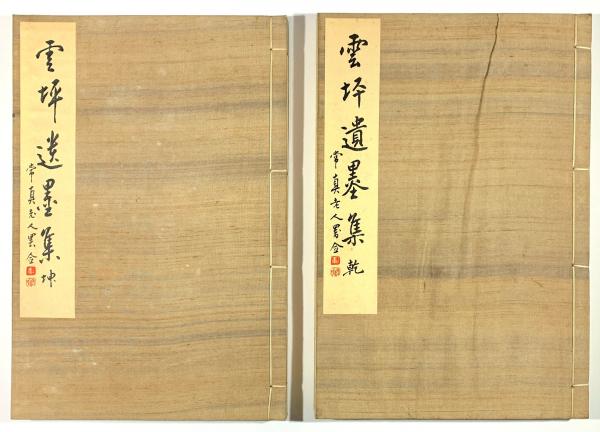 雲坪遺墨集 乾
常真老人署奁
雲坪遺墨集 坤
常真老人署奁